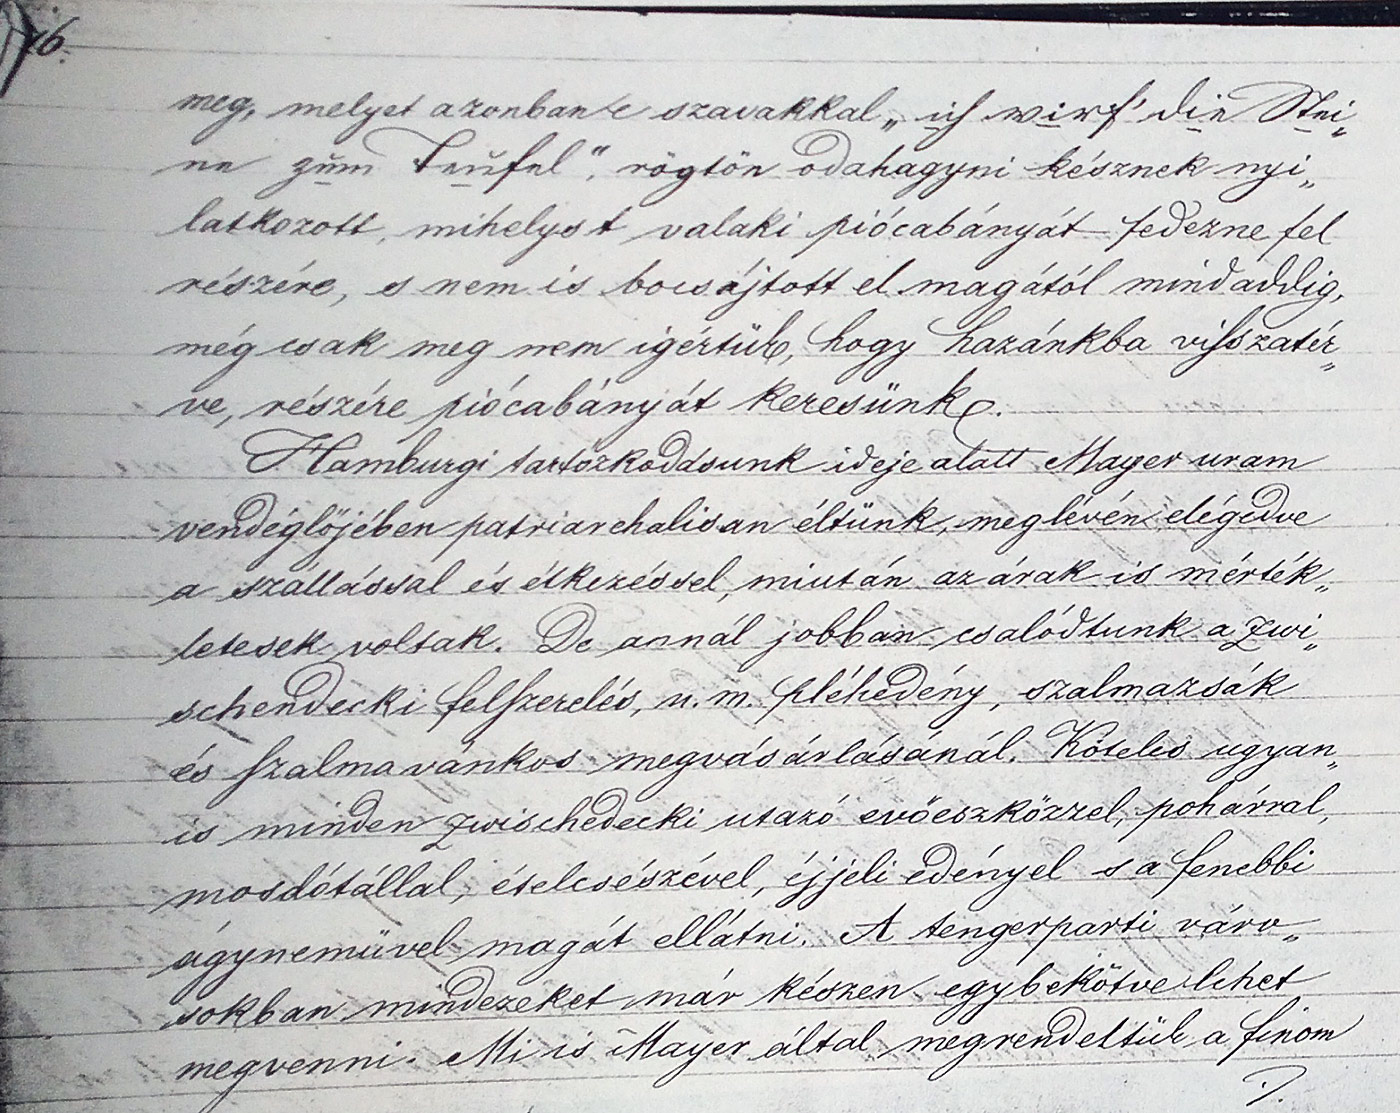 76.
meg, melyet azonban e szavakkal „ich wirf' die Stei„
ne zum Teufel", rögtön odahagyni késznek nyi„
latkozott, mihelyst valaki piócabányát fedezne fel
részére, s nem is bocsájtott el magától mindaddig,
még csak meg nem igértük, hogy hazánkba visszatér„
ve, részére piócabányát keresünk.
Hamburgi tartózkodásunk ideje alatt Mayer uram
vendéglőjében patriarchalisan éltünk, meglévén elégedve
a szállással és étkezéssel, miután az árak is mérték„
letesek voltak. De annál jobban csalódtunk a zwi„
schendecki felszerelés, u. m. pléhedény, szalmazsák
és szalmavánkos megvásárlásánál. Köteles ugyan„
is minden zwischedecki utazó evőeszközzel, pohárral,
mosdótállal, ételcsészével, éjjeli edényel s a fenebbi
ágyneművel magát ellátni. A tengerparti váro„
sokban mindezeket már készen egybekötve lehet
megvenni. Mi is Mayer által megrendeltük a finom